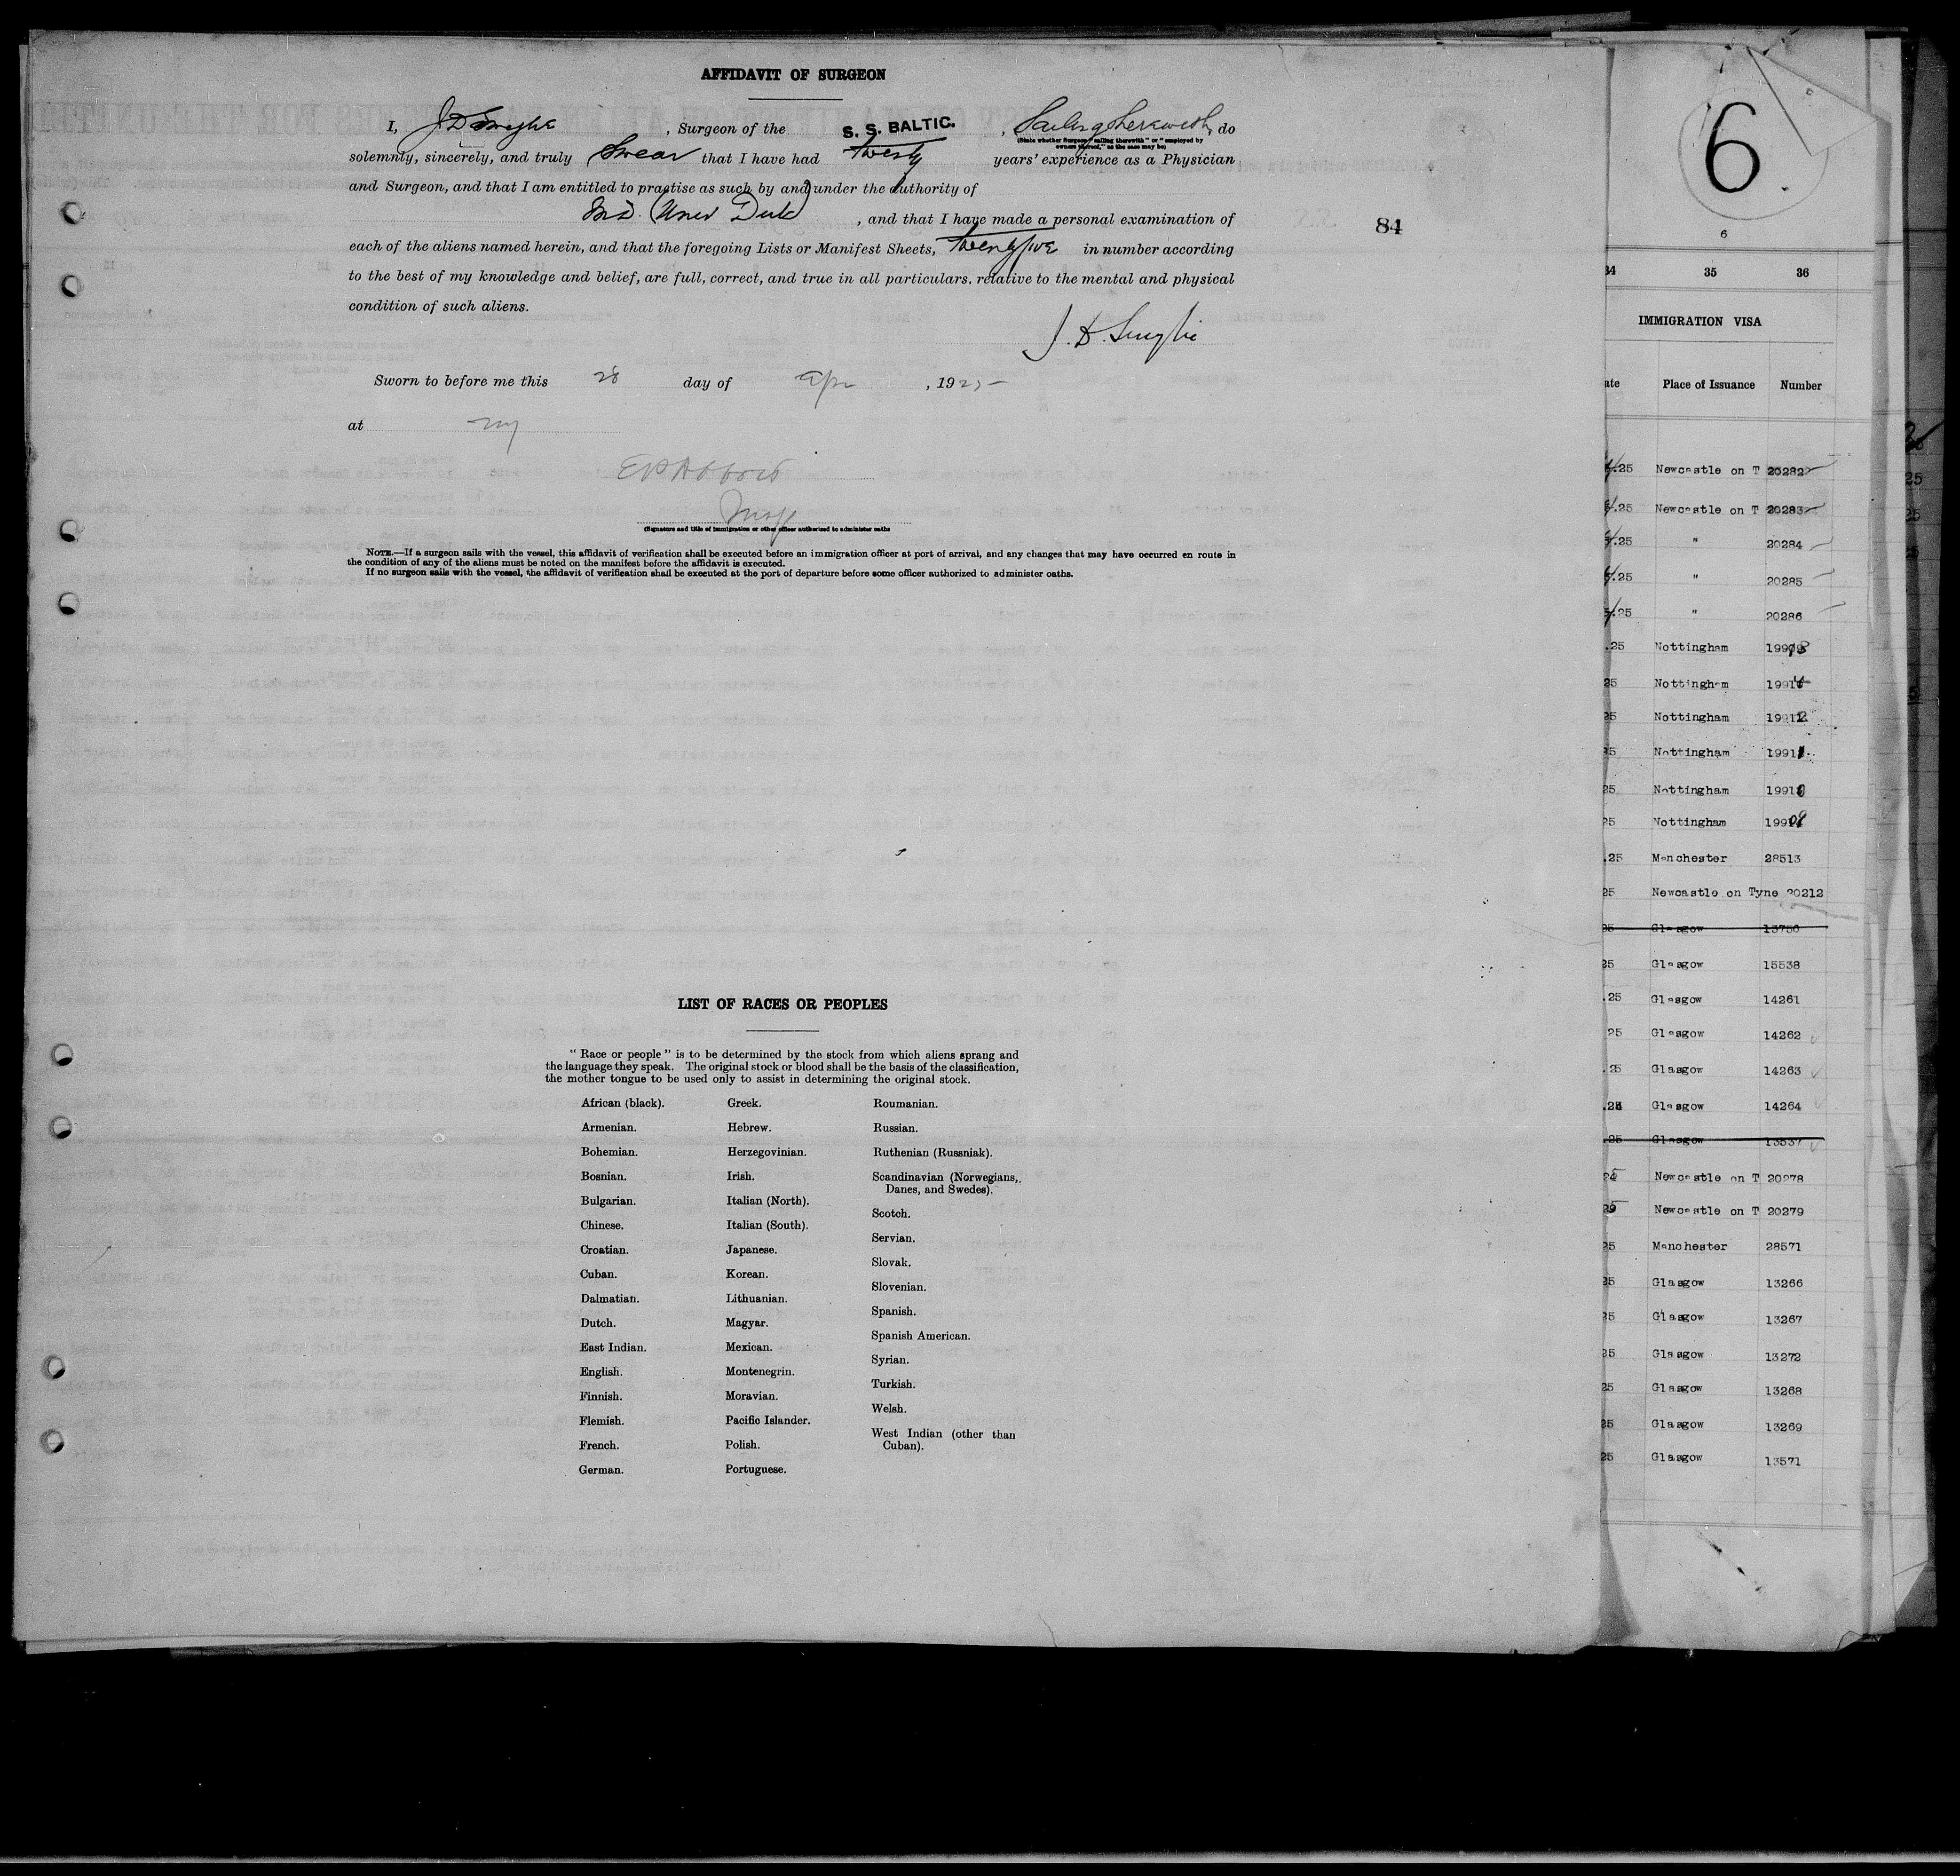 AFFIDAVIT OF SURGEON
I, , Surgeon of the S. S. BALTIC. , Sailing therewith, do
(State whether Surgeon "sailing therewith" or "employed by
owners thereof," as the case may be)
solemnly, sincerely, and truly Swear that I have had twenty years' experience as a Physician
and Surgeon, and that I am entitled to practise as such by and under the authority of
M.D. (Univ Dub) , and that I have made a personal examination of
each of the aliens named herein, and that the foregoing Lists or Manifest Sheets, twenty five in number according
to the best of my knowledge and belief, are full, correct, and true in all particulars, relative to the mental and physical
condition of such aliens.
J. D.
Sworn to before me this 28 day of Apr , 1925
at NY
Insp
(Signature and title of immigration or other officer authorized to administer oaths
NOTE.—If a surgeon sails with the vessel, this affidavit of verification shall be executed before an immigration officer at port of arrival, and any changes that may have occurred en route in
the condition of any of the aliens must be noted on the manifest before the affidavit is executed.
If no surgeon sails with the vessel, the affidavit of verification shall be executed at the port of departure before some officer authorized to administer oaths.
84
LIST OF RACES OR PEOPLES
" Race or people " is to be determined by the stock from which aliens sprang and
the language they speak. The original stock or blood shall be the basis of the classification,
the mother tongue to be used only to assist in determining the original stock.
African (black).
Armenian.
Bohemian.
Bosnian.
Bulgarian.
Chinese.
Croatian.
Cuban.
Dalmatian.
Dutch.
East Indian.
English.
Finnish.
Flemish.
French.
German.
Greek.
Hebrew.
Herzegovinian.
Irish.
Italian (North).
Italian (South).
Japanese.
Korean.
Lithuanian.
Magyar.
Mexican.
Montenegrin.
Moravian.
Pacific Islander.
Polish.
Portuguese.
Roumanian.
Russian.
Ruthenian (Russniak).
Scandinavian (Norwegians,
Danes, and Swedes).
Scotch.
Servian.
Slovak.
Slovenian.
Spanish.
Spanish American.
Syrian.
Turkish.
Welsh.
West Indian (other than
Cuban).
6
6
34 35 36
IMMIGRATION VISA
ate Place of Issuance Number
.25 Newcastle on T 20282
.25 Newcastle on T 20283
.25 " 20284
.25 " 20285
.25 " 20286
.25 Nottingham
25 Nottingham
25 Nottingham
25 Nottingham
25 Nottingham
25 Nottingham
.25 Manchester 28513
25 Newcastle on Tyne 20212
25 Glasgow 13756
25 Glasgow 15538
.25 Glasgow 14261
25 Glasgow 14262
.25 Glasgow 14263
.25 Glasgow 14264
.25 Glasgow 13537
25 Newcastle on T 20278
25 Newcastle on T 20279
25 Manchester 28571
25 Glasgow 13266
25 Glasgow 13267
25 Glasgow 13272
25 Glasgow 13268
25 Glasgow 13269
25 Glasgow 13571